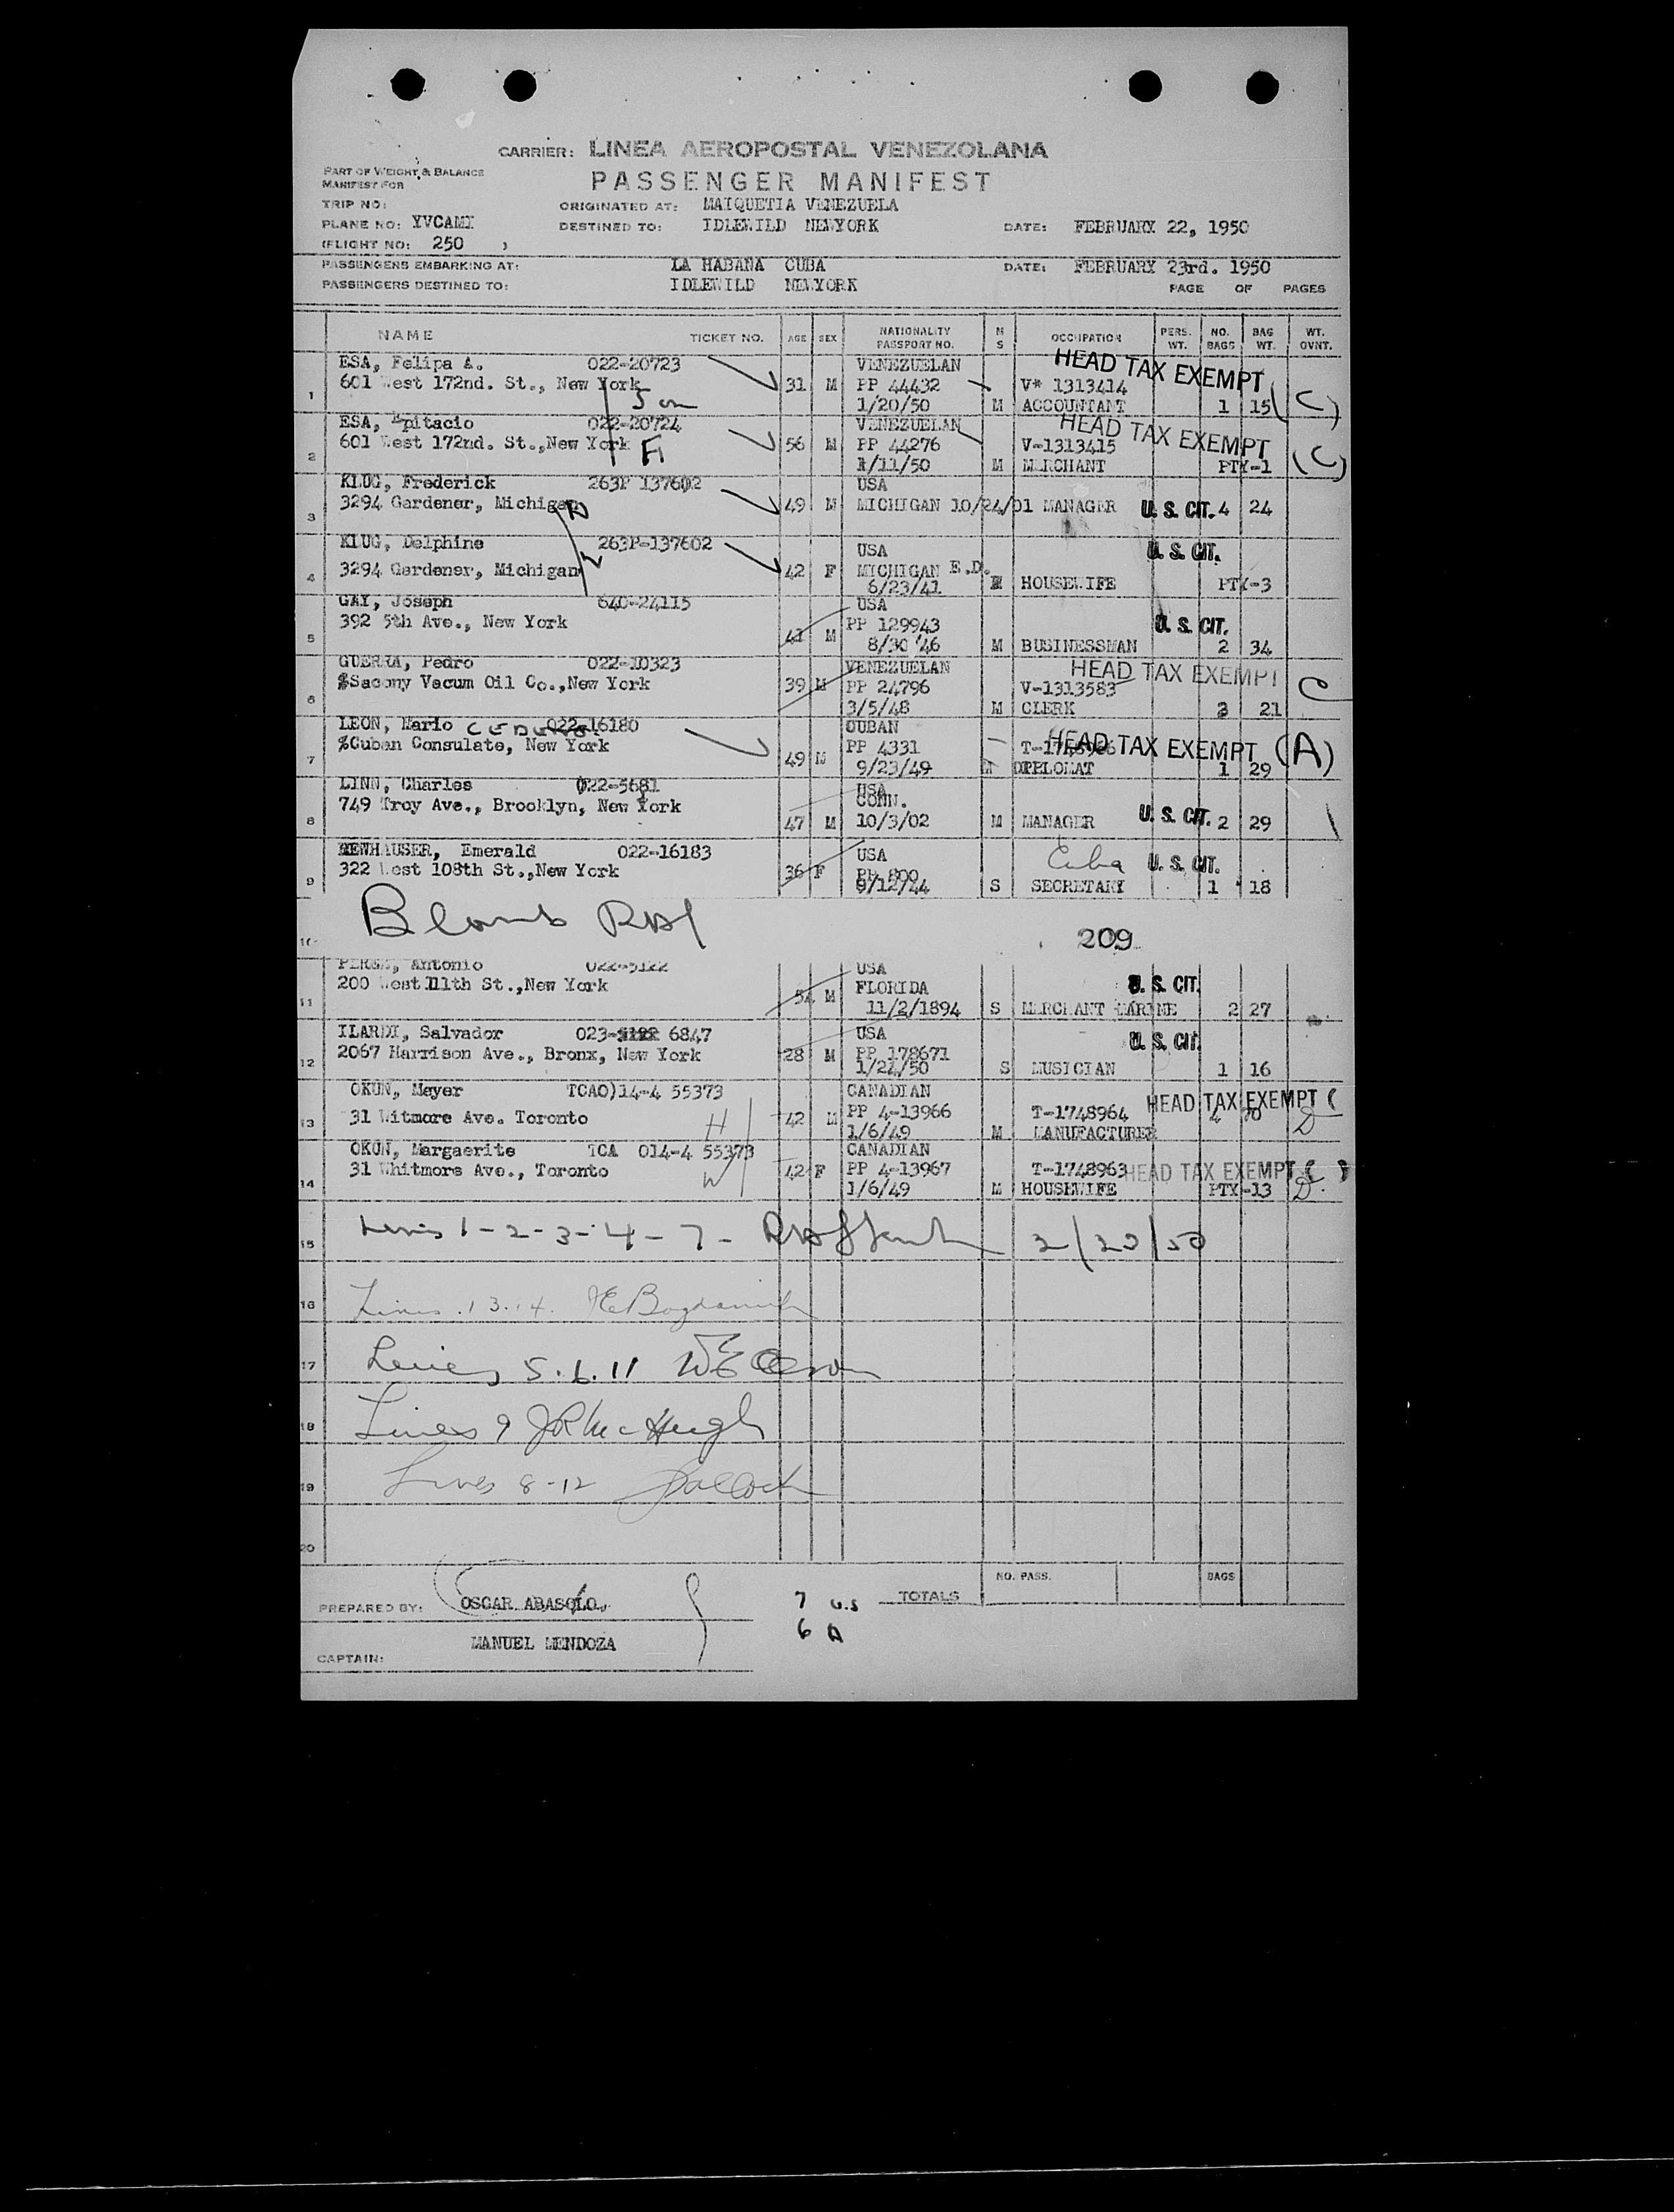 CARRIER: LINEA AEROPOSTAL VENEZOLANA
PART OF WEIGHT & BALANCE
MANIFEST FOR
PASSENGER MANIFEST
TRIP NO:
ORIGINATED AT: MAIQUETIA VENEZUELA
PLANE NO: YVCAMI
DESTINED TO: IDLEWILD NEWYORK
DATE: FEBRUARY 22, 1950
(FLIGHT NO: 250 )
PASSENGERS EMBARKING AT: LA HABANA CUBA DATE: FEBRUARY 23rd. 1950
PASSENGERS DESTINED TO: IDLEWILD NEWYORK PAGE OF PAGES
NAME TICKET NO. AGE SEX NATIONALITY PASSPORT NO. M S OCCUPATION PERS. WT. NO. BAGS BAG WT. WT. OVNT.
ESA, Felipa A. 022-20723 VENEZUELAN HEAD TAX EXEMPT
601 West 172nd. St., New York 31 M PP 44432 V* 1313414
1 Son 1/20/50 M ACCOUNTANT 1 15 (C)
ESA, Epitacio 022-20724 VENEZUELAN HEAD TAX EXEMPT
601 West 172nd. St.,New York 56 M PP 44276 V-1313415
2 F 1/11/50 M MERCHANT PTY-1 (C)
KLUG, Frederick 263P 137602 USA
3294 Gardener, Michigan 49 M MICHIGAN 10/24/01 MANAGER U. S. CIT. 4 24
3 H
KLUG, Delphine 263P-137602 USA U. S. CIT.
3294 Gardener, Michigan 42 F MICHIGAN E.D.
4 W 6/23/41 HOUSEWIFE PTY-3
GAY, Joseph 640-24115 USA
392 5th Ave., New York PP 129943 U. S. CIT.
5 41 M 8/30 '46 M BUSINESSMAN 2 34
GUERRA, Pedro 022-10323 VENEZUELAN HEAD TAX EXEMPT
%Sacony Vacum Oil Co.,New York 39 M PP 24796 V-1313583 C
6 3/5/48 M CLERK 3 21
LEON, Mario CEDENO 022-16180 CUBAN
%Cuban Consulate, New York PP 4331 HEAD TAX EXEMPT (A)
7 49 M 9/23/49 M DIPLOMAT 1 29
LINN, Charles 022-5681 USA
749 Troy Ave., Brooklyn, New York CONN.
8 47 M 10/3/02 M MANAGER U. S. CIT. 2 29
NEWHAUSER, Emerald 022-16183 USA Cuba U. S. CIT.
322 West 108th St.,New York 36 F PP 800
9 9/12/44 S SECRETARY 1 18
10 209
PEREZ, Antonio 022-5122 USA
200 West 111th St.,New York FLORIDA U. S. CIT.
11 54 M 11/2/1894 S MERCHANT MARINE 2 27
ILARDI, Salvador 023- 6847 USA U. S. CIT.
2067 Harrison Ave., Bronx, New York 28 M PP 178671
12 1/24/50 S MUSICIAN 1 16
OKUN, Meyer TCAO)14-4 55373 CANADIAN HEAD TAX EXEMPT (
31 Witmore Ave. Toronto H 42 M PP 4-13966 T-1748964 4 70 D
13 1/6/49 M MANUFACTURER
OKUN, Margaerite TCA 014-4 55373 CANADIAN
31 Whitmore Ave., Toronto W 42 F PP 4-13967 T-1748963 HEAD TAX EXEMPT ( )
14 1/6/49 M HOUSEWIFE PTY-13 D.
15 Lines 1-2-3-4-7- 2/23/50
16 Lines . 13.14.
17 Lines 5.6.11
18 Lines 9 JR McHugh
19 Lines 8-12
20
NO. PASS. BAGS
PREPARED BY: OSCAR ABASOLO. 7 U.S TOTALS
6 A
MANUEL MENDOZA
CAPTAIN: